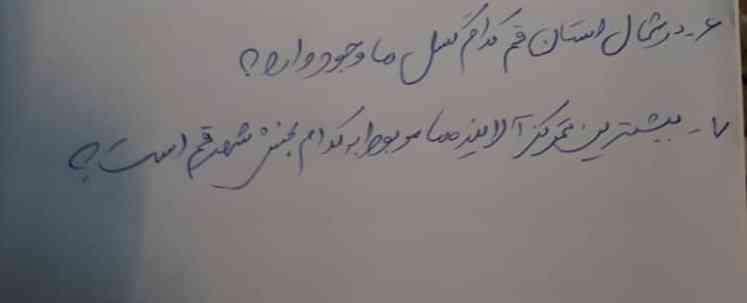 ۶- در شمال استان قم کدام گسل ها وجود دارد؟
۷- بیشترین تمرکز آلاینده ها مربوط به کدام بخش شهر قم است؟